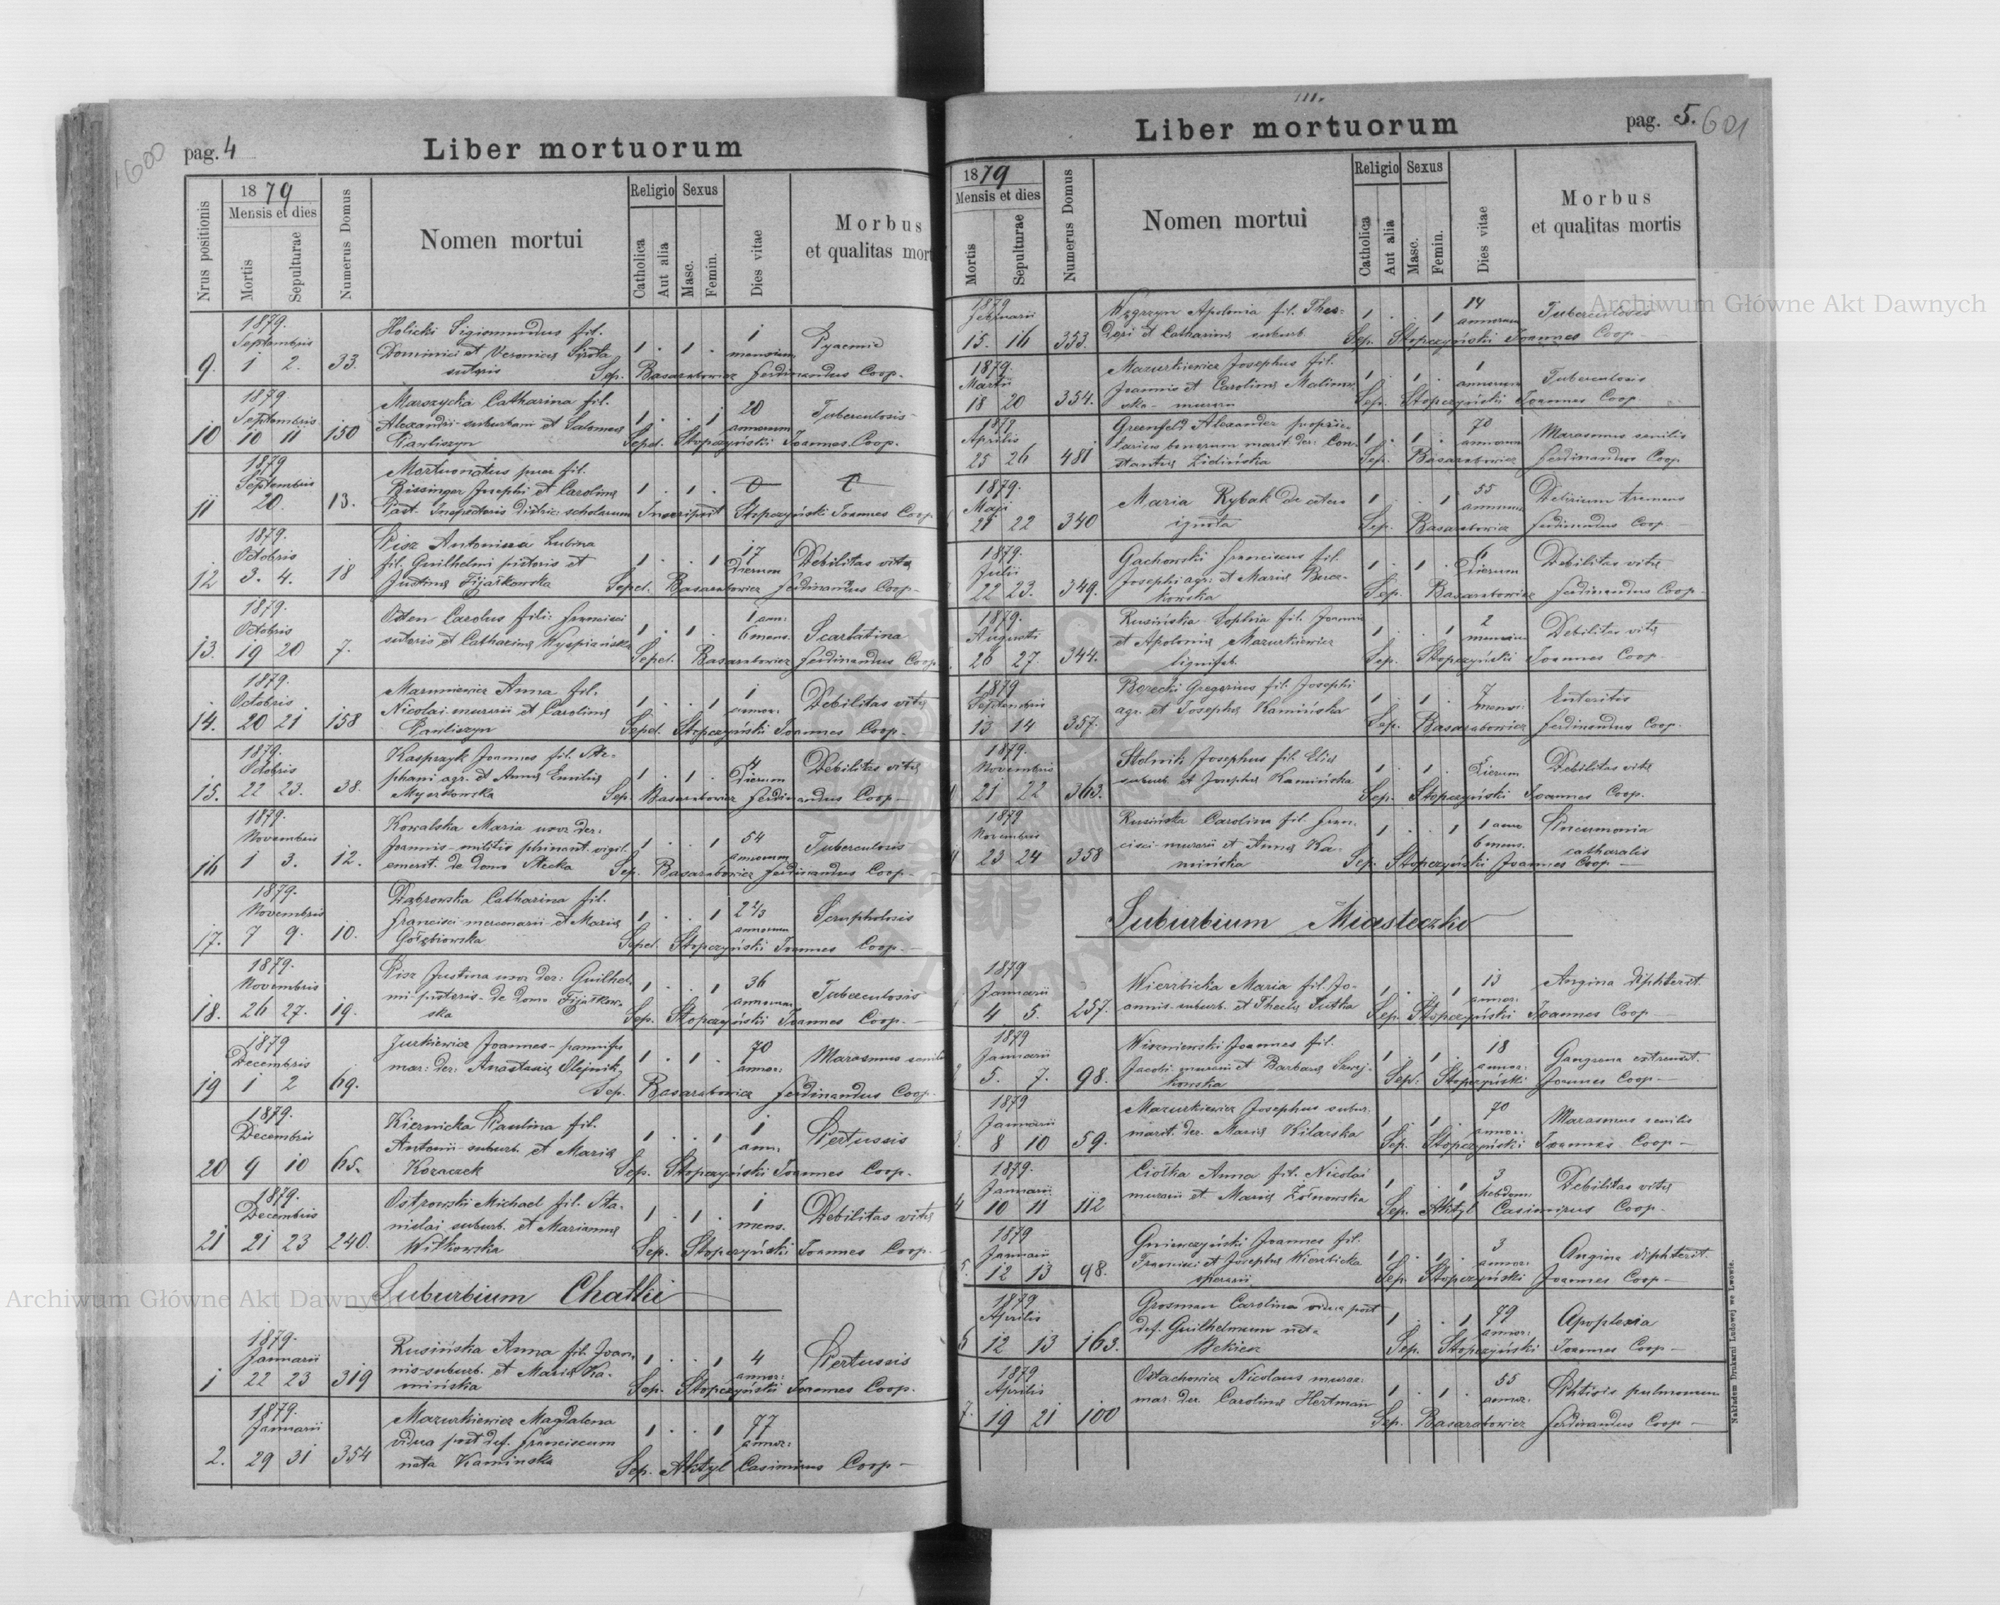 600
pag. 4
Liber mortuorum
Nrus positionis
1879
Mensis et dies
Mortis
Sepulturae
Numerus Domus
Nomen mortui
Religio
Catholica
Aut alia
Sexus
Masc.
Femin.
Dies vitae
Morbus
et qualitas mort
1879.
Septembris
9. 1 2. 33.
Holicki Sigismundus fil.
Dominici et Veronica
sutoris
1 . 1 . 1 mensium
Sep. Basarabowicz Ferdinandus Coop.
1879
Septembris
10 10 11 150
Marszycka Catharina fil.
Alexandri suburbani et Salomea
Pawliszyn
1 . . 1 20 annorum Tuberculosis
Sepel. Stopczyński Joannes Coop.
1879
Septembris
11 20. 13.
Mortuonatus puer fil.
Bissinger Josephi et Carolina
Inspectoris district. scholarum
1 . 1 .
Inscripsit Stopczyński Joannes Coop
1879.
Octobris
12 3. 4. 18
Pisz Antonina
fil. Guilhelmi pistoris et
Justina Fijałkowska
1 . . 1 17 Dierum Debilitas vitæ
Sepel. Basarabowicz Ferdinandus Coop
1879.
Octobris
13. 19 20 7.
Osten Carolus fili: Francisci
sutoris et Catharina Wyspiańska
1 . 1 . 1 ann: 6 mens. Scarlatina
Sepel. Basarabowicz Ferdinandus Coop
1879.
Octobris
14. 20 21 158
Anna fil.
Nicolai murarii et Carolina
Pawliszyn
1 . . 1 1 annor. Debilitas vitæ
Sepel. Stopczyński Joannes Coop.
1879.
Octobris
15. 22 23. 38.
Kasprzyk Joannes fil. Ste-
phani agr. et Anna Emilia
1 . 1 . Dierum Debilitas vitæ
Sep. Basarabowicz Ferdinandus Coop
1879.
Novembris
16 1 3. 12.
Kowalska Maria uxor der:
Joannis militis vigil.
emerit. de domo Stecka
1 . . 1 54 annorum Tuberculosis
Sep. Basarabowicz Ferdinandus Coop
1879.
Novembris
17. 7 9. 10.
Dąbrowska Catharina fil.
Francisci mercenarii et Maria
Gołębiowska
1 . . 1 2 2/3 annorum Scrupholosis
Sepel. Stopczyński Joannes Coop.
1879.
Novembris
18. 26 27. 19.
Pisz Justina uxor der: Guilhel-
mi pistoris de domo Fijałkow-
ska
1 . . 1 36 annorum Tuberculosis
Sep. Stopczyński Joannes Coop.
1879
Decembris
19 1 2 69.
Żurkiewicz Joannes
mar: der: Anastasia Olejnik
1 . 1 . 70 annor: Marasmus senilis
Sep. Basarabowicz Ferdinandus Coop.
1879.
Decembris
20 9 10 65.
Kiernicka Paulina fil.
Antonii suburb. et Maria
Kozaczek
1 . . 1 1 ann. Pertussis
Sep. Stopczyński Joannes Coop.
1879.
Decembris
21 21 23 240.
Ostrowski Michael fil. Sta-
nislai suburb. et Marianna
Witkowska
1 . 1 . 1 mens. Debilitas vitæ
Sep. Stopczyński Joannes Coop
Suburbium Chałki
1879.
Januarii
1 22 23 319
Rusińska Anna fil. Joan-
nis suburb. et Maria Ka-
mińska
1 . . 1 4 annor: Pertussis
Sep. Stopczyński Joannes Coop.
1879.
Januarii
2. 29 31 354
Mazurkiewicz Magdalena
vidua post def. Franciscum
nata Kaminska
1 . . 1 77 annor:
Sep. Aktyl Casimirus Coop
III.
Liber mortuorum
pag. 5. 601
1879
Mensis et dies
Mortis
Sepulturae
Numerus Domus
Nomen mortui
Religio
Catholica
Aut alia
Sexus
Masc.
Femin.
Dies vitae
Morbus
et qualitas mortis
1879
Februarii
15. 16 333.
Apolonia fil. Tha-
dei et Catharina suburb.
1 . . 1 14 annorum Tuberculosis
Sep. Stopczyński Joannes Coop
1879.
Martii
18 20 354.
Mazurkiewicz Josephus fil.
Joannis et Carolina Malinow-
ska murarii
1 . 1 . 1 annorum Tuberculosis
Sep. Stopczyński Joannes Coop
1879
Aprilis
25 26 481
Greenfeld Alexander poprie-
tarius bonorum marit. der: Con-
stantia Zielińska
1 . 1 . 70 annorum Marasmus senilis
Sep. Basarabowicz Ferdinandus Coop
1879.
Maji
21 22 340
Maria Rybak de cetero
ignota
1 . . 1 55 annorum Delirium tremens
Sep. Basarabowicz Ferdinandus Coop
1879.
Julii
22 23. 349.
Gachowski Franciscus fil.
Josephi agr. et Maria Bere-
kowska
1 . 1 . 6 Dierum Debilitas vitæ
Sep. Basarabowicz Ferdinandus Coop
1879.
Augusti
26 27. 344.
Rusińska Sophia fil. Joannis
et Apolonia Mazurkiewicz
lignifab.
1 . . 1 2 mensium Debilitas vitæ
Sep. Stopczyński Joannes Coop
1879
Septembris
13 14 357.
Berecki Gregorius fil. Josephi
agr. et Josepha Kamińska
1 . 1 . 7 mensi: Enteritis
Sep. Basarabowicz Ferdinandus Coop
1879.
Novembris
21 22 363.
Josephus fil. Elia
suburb. et Josepha Kamińska
1 . 1 . Dierum Debilitas vitæ
Sep. Stopczyński Joannes Coop.
1879
Novembris
23 24 358
Rusińska Carolina fil. Fran-
cisci murarii et Anna Ka-
mińska
1 . . 1 1 anno 6 mens. Pneumonia
catharalis
Sep. Stopczyński Joannes Coop
Suburbium Miasteczko
1879
Januarii
4 5. 257.
Wierzbicka Maria fil. Jo-
annis suburb. et Thecla Dutka
1 . . 1 13 annor: Angina diphterit.
Sep. Stopczyński Joannes Coop
1879
Januarii
5. 7. 98.
Wiszniewski Joannes fil.
Jacobi murarii et Barbara Szwej-
kowska
1 . 1 . 18 annor: Gangrena extremit.
Sepel. Stopczyński Joannes Coop
1879
Januarii
8 10 59.
Mazurkiewicz Josephus subur.
marit. der. Maria Witarska
1 . 1 . 70 annor: Marasmus senilis
Sep. Stopczyński Joannes Coop
1879.
Januarii
4 10 11 112
Ciołka Anna fil. Nicolai
murarii et Maria Żółnowska
1 . . 1 3 hebdom: Debilitas vitæ
Sep. Aktyl Casimirus Coop
1879
Januarii
5. 12 13 98.
Gniewczyński Joannes fil.
Francisci et Josepha Wierzbicka
operarii
1 . 1 . 3 annor: Angina diphterit.
Sep. Stopczyński Joannes Coop
1879
Aprilis
12 13 163.
Grosman Carolina vidua post
def. Guilhelmum nata
Bekier
1 . . 1 79 annor: Apoplexia
Sep. Stopczyński Joannes Coop
1879
Aprilis
7. 19 21 100
Ostachowicz Nicolaus murar.
mar. der. Carolina Hertman
1 . 1 . 55 annor. Phtisis pulmonum
Sep. Basarabowicz Ferdinandus Coop
Nakładem Drukarni Ludowej we Lwowie.
Archiwum Główne Akt Dawnych
Archiwum Główne Akt Dawnych